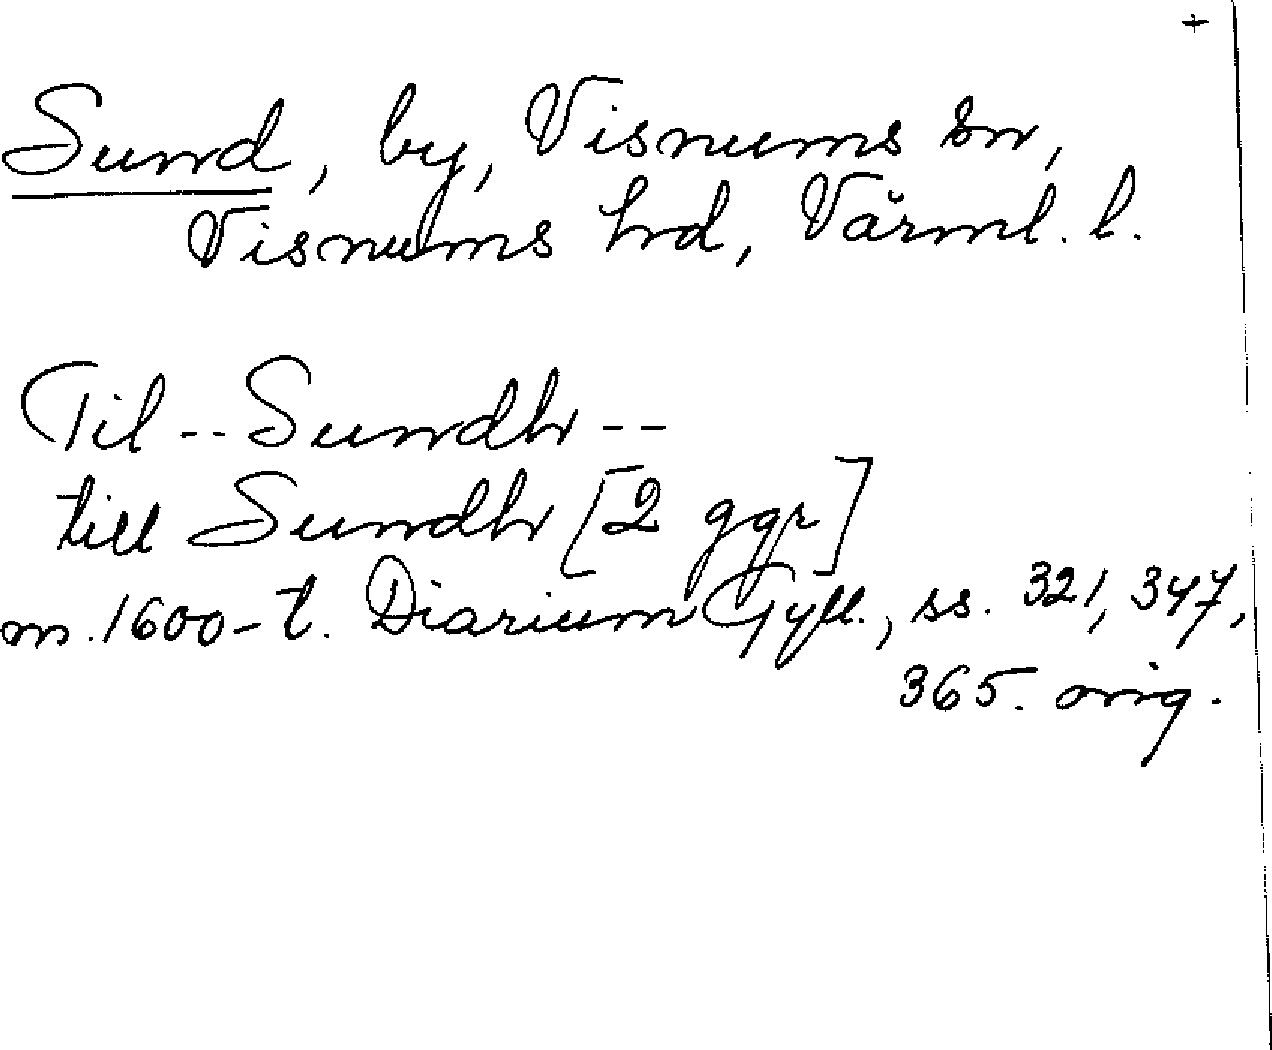 +
Sund, by, Visnums sn,
Visnums hd, Värml. l.
Til -- Sundh --
till Sundh [2 ggr]
m. 1600-t. Diarium Gyll., ss. 321, 347,
365. orig.